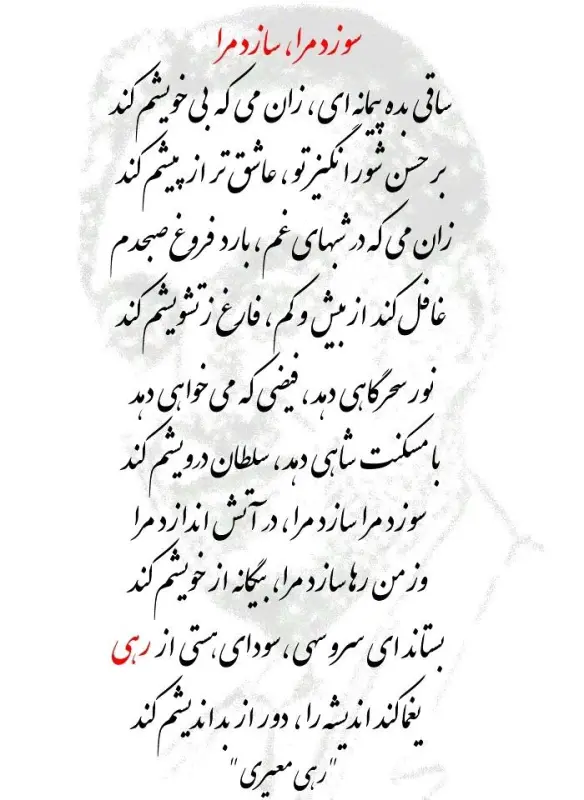 سوزد مرا، سازد مرا
ساقی بده پیمانه ای، زان می که بی خویشم کند
بر حسن شور انگیز تو، عاشق تر از پیشم کند
زان می که در شبهای غم، بارد فروغ صبحدم
غافل کند از بیش و کم، فارغ ز تشویشم کند
نور سحرگاهی دهد، فیضی که می خواهی دهد
با مسکنت شاهی دهد، سلطان درویشم کند
سوزد مرا سازد مرا، در آتش اندازد مرا
وز من رها سازد مرا، بیگانه از خویشم کند
بستاند ای سرو سهی، سودای هستی از رهی
یغما کند اندیشه را، دور از بد اندیشم کند
"رهی معیری"